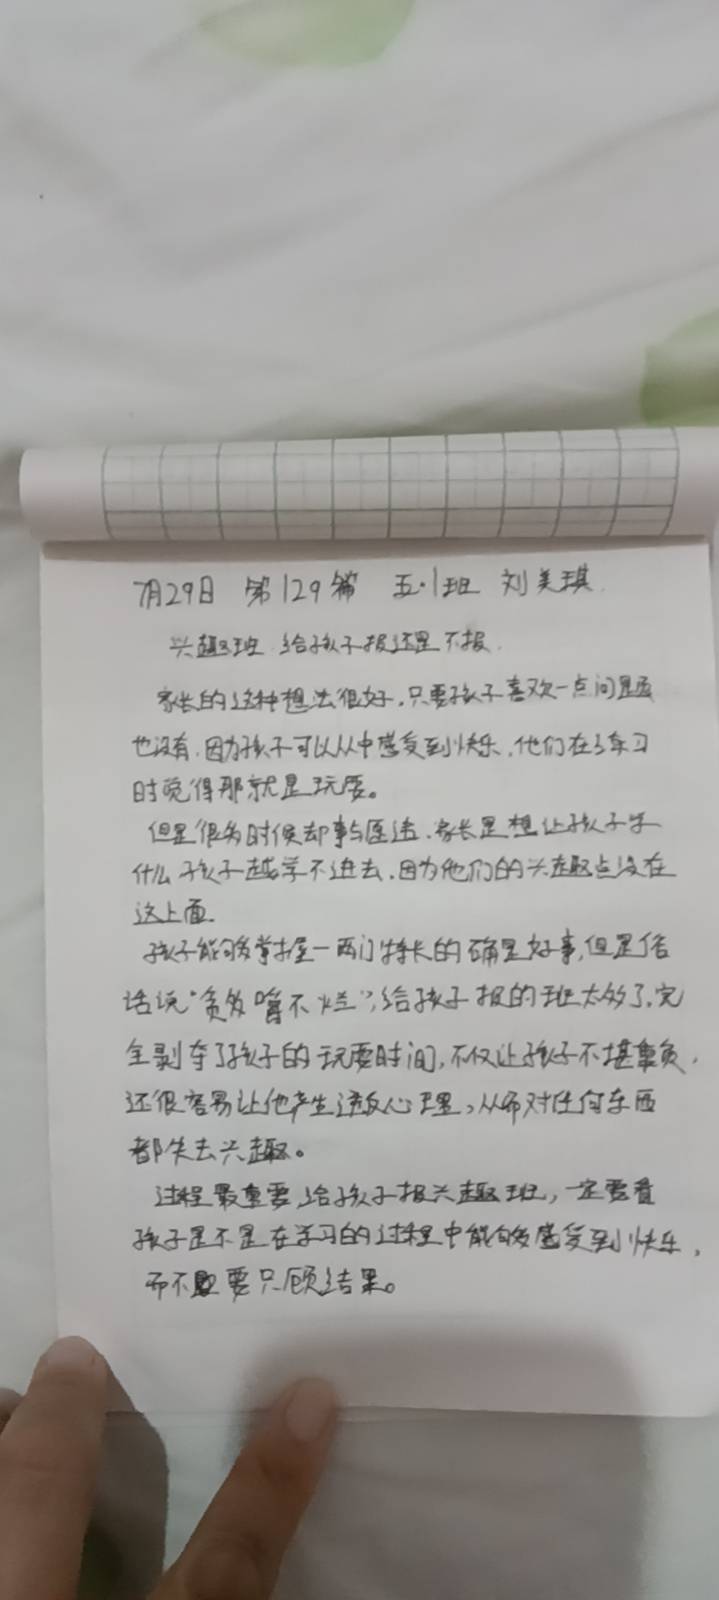 7月29日 第129篇 五·1班 刘美琪.
兴趣班.给孩子报还是不报.
家长的这种想法很好,只要孩子喜欢一点问题
也没有.因为孩子可以从中感受到快乐.他们在学习
时觉得那就是玩耍。
但是很多时候却事与愿违.家长是想让孩子学
什么孩子越学不进去.因为他们的兴趣点没在
这上面.
孩子能够掌握一两门特长的确是好事,但是俗
话说"贪多嚼不烂",给孩子报的班太多了,完
全剥夺了孩子的玩耍时间,不仅让孩子不堪重负,
还很容易让他产生逆反心理,从而对任何东西
都失去兴趣。
过程最重要,给孩子报兴趣班,一定要看
孩子是不是在学习的过程中能够感受到快乐,
而不要只顾结果。